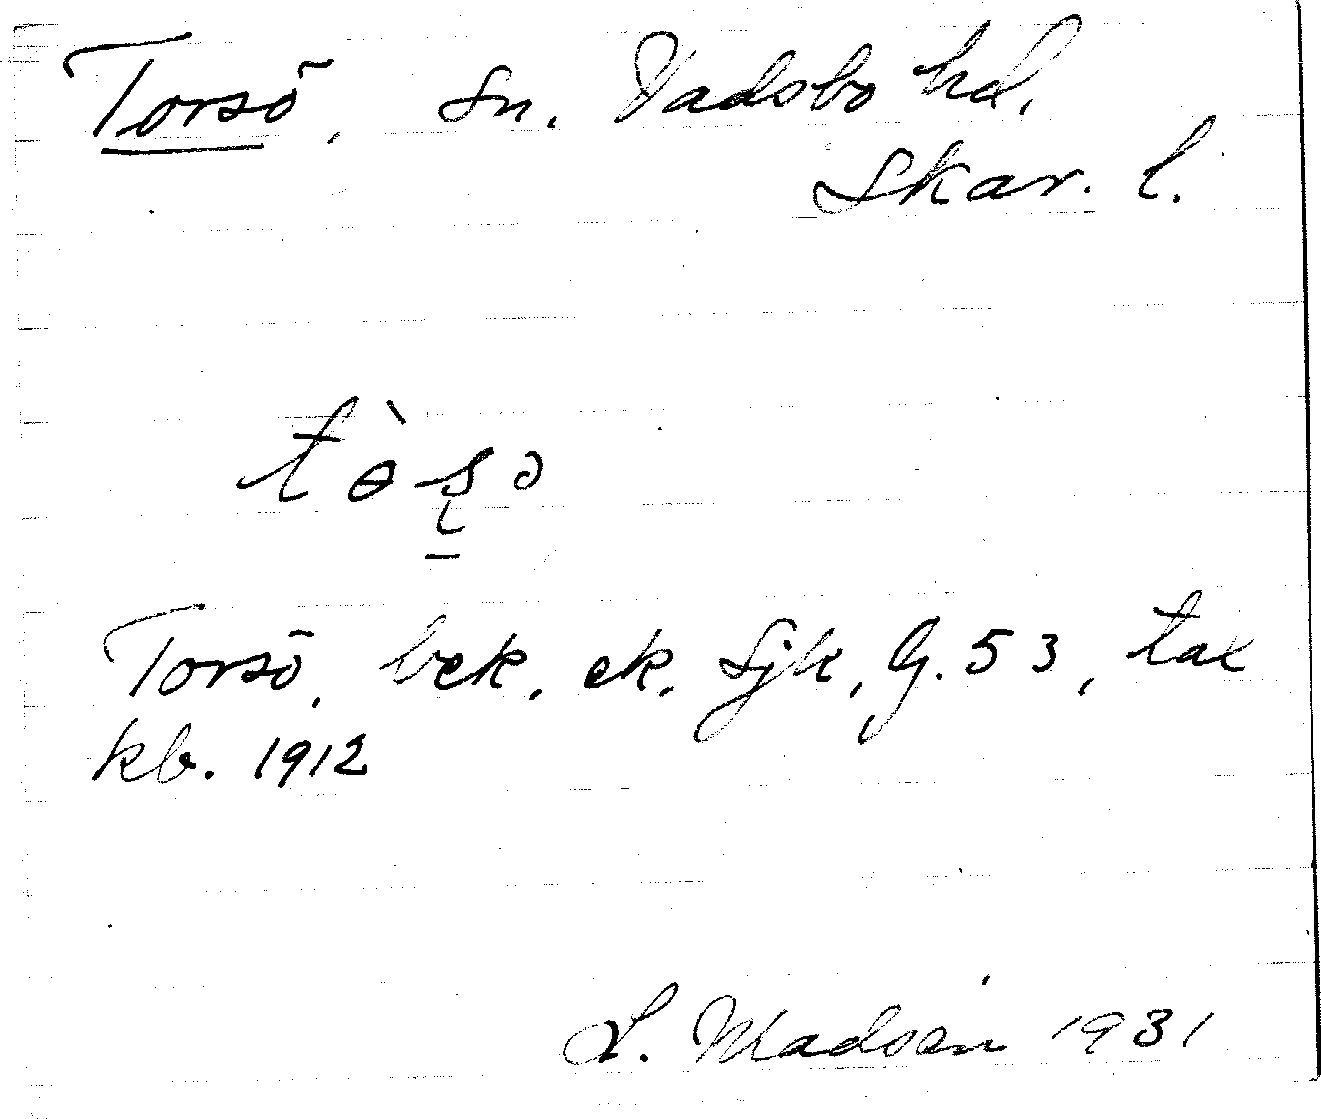 Torsö, sn. Vadsbo hd.
Skar. l.
tɵ̀ʂə
Torsö, bek. ek. Sjk, G. 53, tax
kb. 1912
L. Madsén 1931